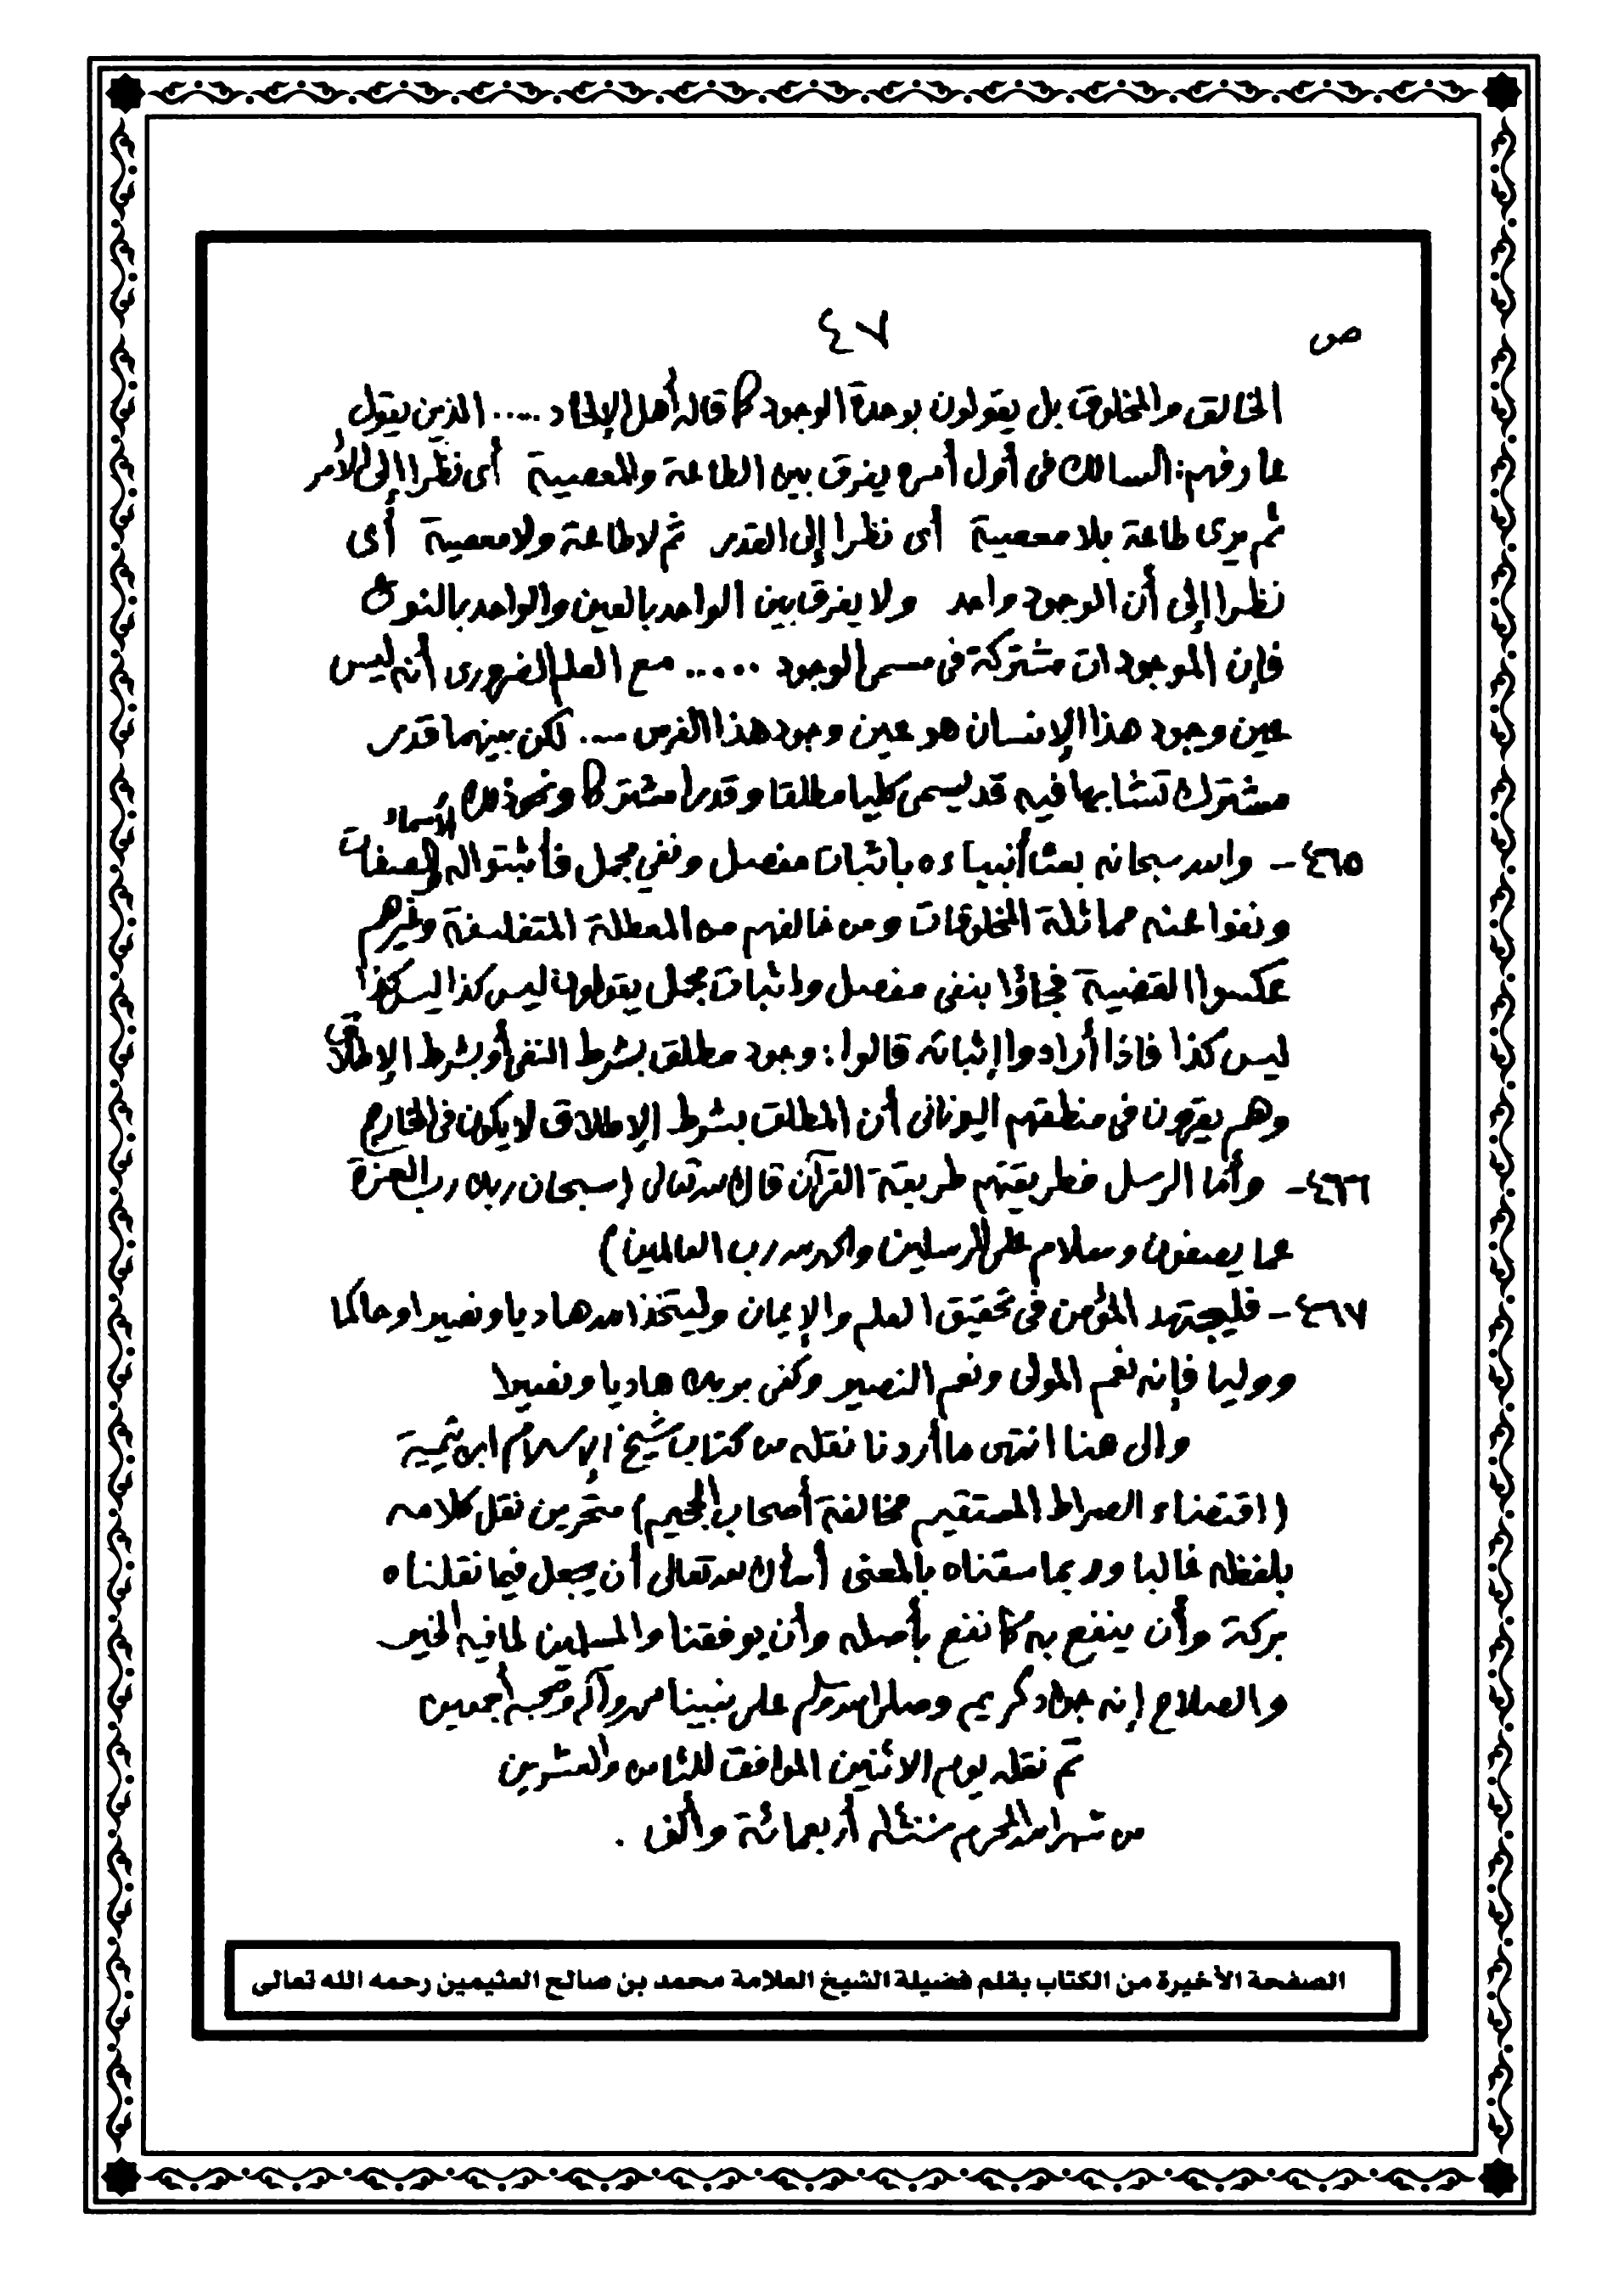 ص ٤٧
الخالق والمخلوق بل يقولون بوحدة الوجود كما قاله أهل الإلحاد ..... الذين يقول
عارفهم: السالك فى أول أمره يفرق بين الطاعة والمعصية أى نظرا إلى الأمر
ثم يرى طاعة بلا معصية أى نظرا إلى القدر ثم لا طاعة ولا معصية أى
نظرا إلى أن الوجود واحد ولا يفرق بين الواحد بالعين والواحد بالنوع
فإن الموجودات مشتركة فى مسمى الوجود ..... مع العلم الضرورى أنه ليس
عين وجود هذا الإنسان هو عين وجود هذا الفرس .... لكن بينهما قدر
مشترك تشابها فيه قد يسمى كليا مطلقا وقدرا مشتركا ونحو ذلك
٤٦٥ - والله سبحانه بعث أنبياءه باثبات مفصل ونفي مجمل فأثبتوا له الأسماء والصفات
ونفوا عنه مماثلة المخلوقات ومن خالفهم من المعطلة المتفلسفة وغيرهم
عكسوا القضية فجاؤا بنفى مفصل واثبات مجمل يقولون ليس كذا ليس كذا
ليس كذا فاذا أرادوا إثباته قالوا: وجود مطلق بشرط النفى أو بشرط الإطلاق
وهم يقرون فى منطقهم اليونانى أن المطلق بشرط الإطلاق لا يكون فى الخارج
٤٦٦ - وأما الرسل فطريقتهم طريقة القرآن قال الله تعالى (سبحان ربك رب العزة
عما يصفون وسلام على المرسلين والحمد لله رب العالمين)
٤٦٧ - فليجتهد المؤمن فى تحقيق العلم والإيمان وليتخذ الله هاديا ونصيرا وحاكما
ووليا فإنه نعم المولى ونعم النصير وكفى بربك هاديا ونصيرا
والى هنا انتهى ما أردنا نقله من كتاب شيخ الإسلام ابن تيمية
(اقتضاء الصراط المستقيم مخالفة أصحاب الجحيم) متحرين نقل كلامه
بلفظه غالبا وربما سقناه بالمعنى أسأل الله تعالى أن يجعل فيما نقلناه
بركة وأن ينفع به كما نفع بأصله وأن يوفقنا والمسلمين لما فيه الخير
والصلاح إنه جواد كريم وصلى الله وسلم على نبينا محمد وآله وصحبه أجمعين
تم نقله يوم الاثنين الموافق للثامن والعشرين
من شهر الله المحرم سنة أربعمائة وألف .
الصفحة الأخيرة من الكتاب بقلم فضيلة الشيخ العلامة محمد بن صالح العثيمين رحمه الله تعالى